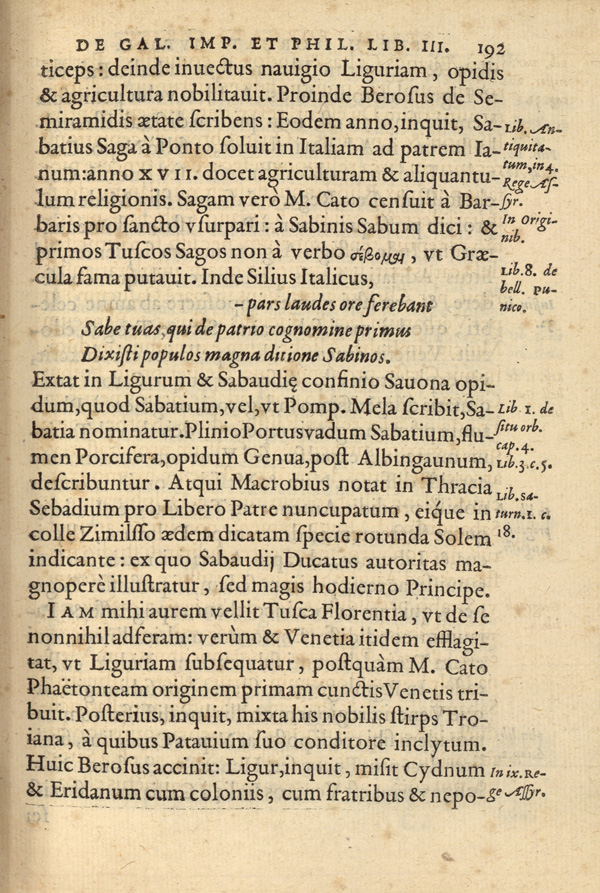 DE GAL. IMP. ET PHIL. LIB. III. 192
ticeps: deinde inuectus nauigio Liguriam, opidis
& agricultura nobilitauit. Proinde Berosus de Se-
miramidis ætate scribens: Eodem anno, inquit, Sa-
batius Saga à Ponto soluit in Italiam ad patrem Ia-
num: anno XVII. docet agriculturam & aliquantu-
lum religionis. Sagam verò M. Cato censuit à Bar-
baris pro sancto vsurpari: à Sabinis Sabum dici: &
primos Tuscos Sagos non à verbo σέβομαι, vt Græ-
cula fama putauit. Inde Silius Italicus,
– pars laudes ore ferebant
Sabe tuas, qui de patrio cognomine primus
Dixisti populos magna ditione Sabinos.
Extat in Ligurum & Sabaudię confinio Sauona opi-
dum, quod Sabatium, vel, vt Pomp. Mela scribit, Sa-
batia nominatur. Plinio Portusvadum Sabatium, flu-
men Porcifera, opidum Genua, post Albingaunum,
describuntur. Atqui Macrobius notat in Thracia
Sebadium pro Libero Patre nuncupatum, eiq́ue in
colle Zimilsso ædem dicatam specie rotunda Solem
indicante: ex quo Sabaudij Ducatus autoritas ma-
gnoperè illustratur, sed magis hodierno Principe.
IAM mihi aurem vellit Tusca Florentia, vt de se
nonnihil adferam: verùm & Venetia itidem efflagi-
tat, vt Liguriam subsequatur, postquàm M. Cato
Phaëtonteam originem primam cunctis Venetis tri-
buit. Posterius, inquit, mixta his nobilis stirps Tro-
iana, à quibus Patauium suo conditore inclytum.
Huic Berosus accinit: Ligur, inquit, misit Cydnum
& Eridanum cum coloniis, cum fratribus & nepo-
Lib. An-
tiquita-
tum, in 4.
Rege As-
syr.
In Origi-
nib.
Lib. 8. de
bell. pu-
nico.
Lib 1. de
situ orb.
cap. 4.
Lib. 3. c. 5.
Lib. sa-
turn. 1. c.
18.
In ix. Re-
ge Assyr.